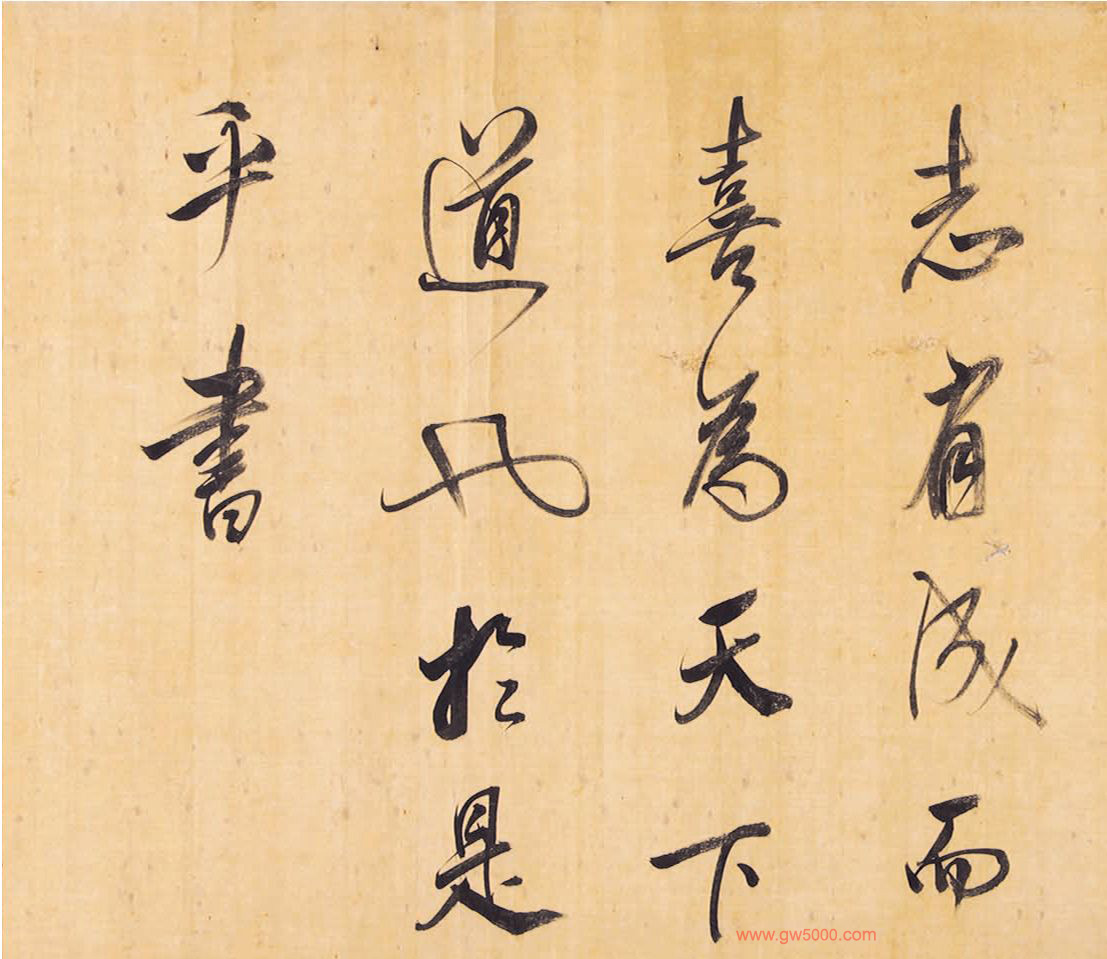 志有成而
喜為天下
道也於是
乎書
www.gw5000.com